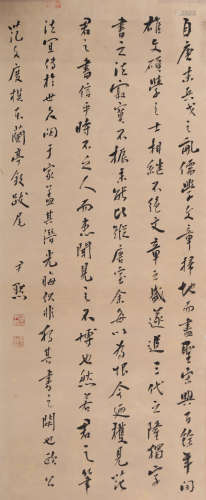 自唐末兵戈之亂儒學文章掃地而盡聖宋興百餘年間
雄文碩學之士相繼不絕文章之盛遂追三代之隆獨字
書之法寂寞不振未能比蹤唐室余每以為恨今迺獲見范
君之書信乎時不乏人而患聞見之不博也然若君之筆
法宜傳於世久閟于家盖其潛光晦伏非特其書之閟也歐公
范文度模本蘭亭敘跋尾 尹默